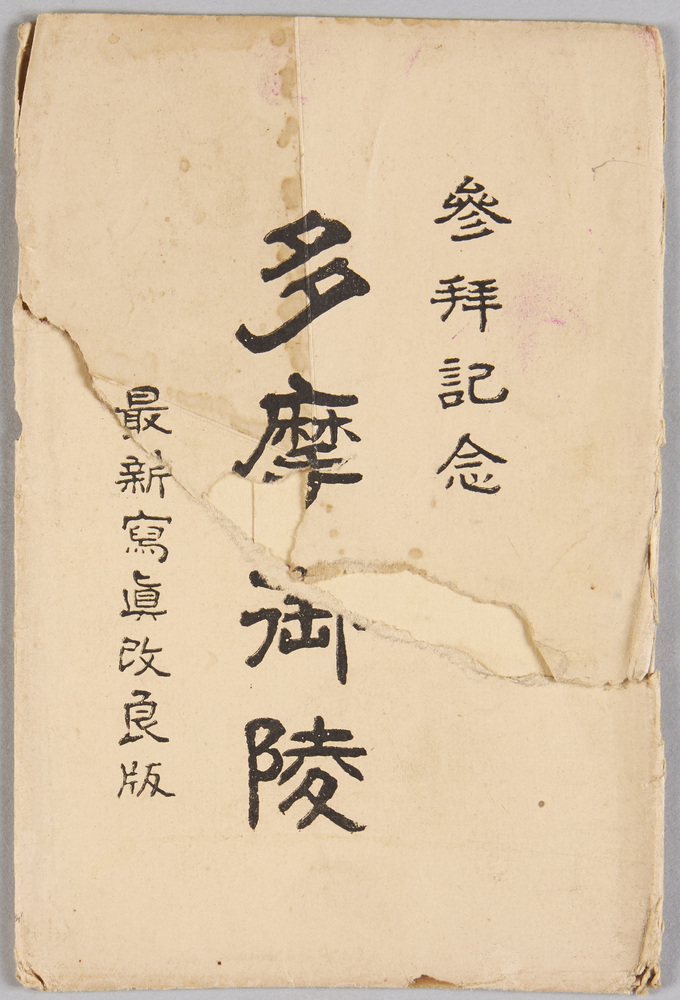 參拜記念
多摩御陵
最新寫眞改良版